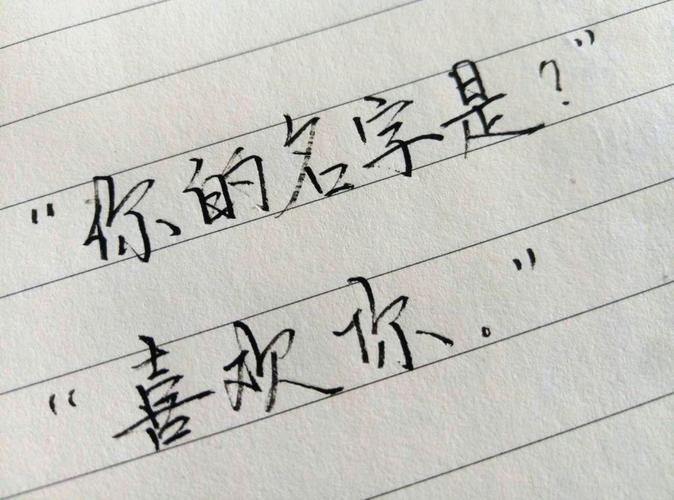 “你的名字是？”
“喜欢你.”